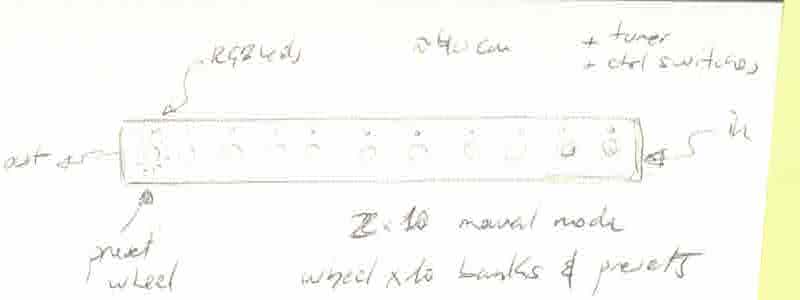 RGB leds
~40 cm
+ tuner
+ ctrl switches
out
in
preset
wheel
2.10 manual mode
wheel x 10 banks & presets